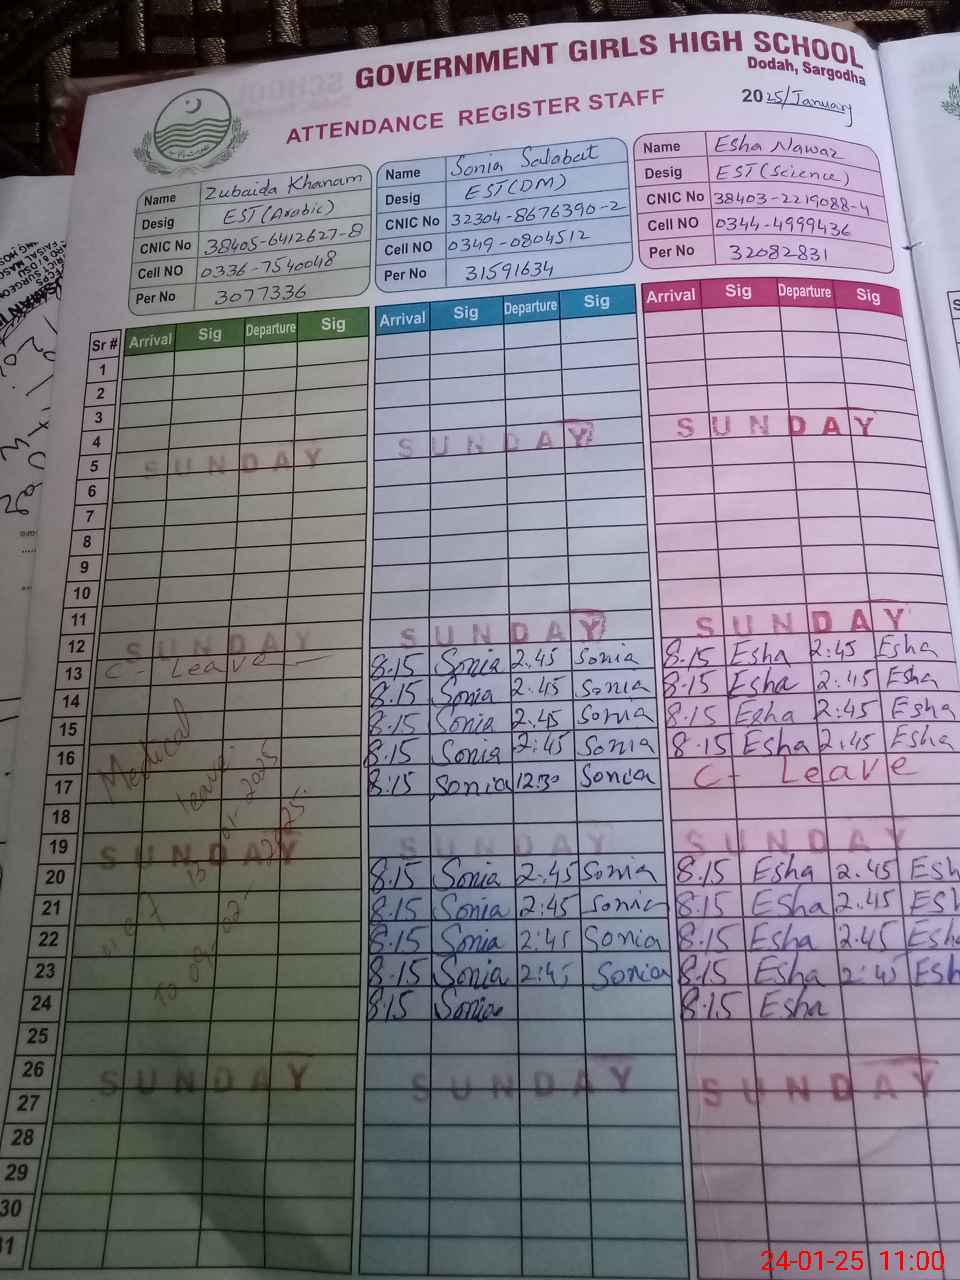 GOVERNMENT GIRLS HIGH SCHOOL
Dodah, Sargodha
ATTENDANCE REGISTER STAFF
2025/January
Name Zubaida Khanam
Desig EST(Arabic)
CNIC No 38405-6412627-8
Cell NO 0336-7540048
Per No 3077336
Name Sonia Salabat
Desig EST(DM)
CNIC No 32304-8676390-2
Cell NO 0349-0804512
Per No 31591634
Name Esha Nawaz
Desig EST(Science)
CNIC No 38403-2219088-4
Cell NO 0344-4999436
Per No 32082831
Sr # Arrival Sig Departure Sig Arrival Sig Departure Sig Arrival Sig Departure Sig
1
2
3
4
5 SUNDAY SUNDAY SUNDAY
6
7
8
9
10
11
12 SUNDAY SUNDAY SUNDAY
13 C- Leave 8.15 Sonia 2.45 Sonia 8.15 Esha 2:45 Esha
14 8.15 Sonia 2.45 Sonia 8.15 Esha 2:45 Esha
15 Medical 8.15 Sonia 2.45 Sonia 8.15 Esha 2:45 Esha
16 leave 8.15 Sonia 2:45 Sonia 8.15 Esha 2:45 Esha
17 8:15 Sonia 12:30 Sonia C- Leave
18
19 SUNDAY SUNDAY SUNDAY
20 8.15 Sonia 2.45 Sonia 8.15 Esha 2.45 Esh
21 8.15 Sonia 2:45 Sonia 8.15 Esha 2.45 Esh
22 8.15 Sonia 2:45 Sonia 8.15 Esha 2.45 Esha
23 8.15 Sonia 2:45 Sonia 8.15 Esha 2:45 Esh
24 8.15 Sonia 8.15 Esha
25
26 SUNDAY SUNDAY SUNDAY
27
28
29
30
31
24-01-25 11:00